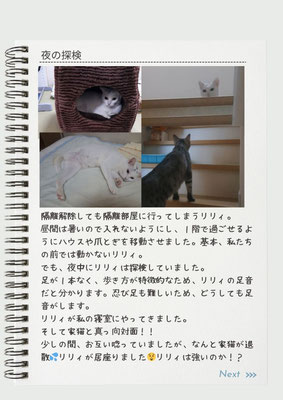 夜の探検
隔離解除しても隔離部屋に行ってしまうリリィ。
昼間は暑いので入れないようにし、1階で過ごせるよ
うにハウスや爪とぎを移動させました。基本、私たち
の前では動かないリリィ。
でも、夜中にリリィは探検していました。
足が1本なく、歩き方が特徴的なため、リリィの足音
だと分かります。忍び足も難しいため、どうしても足
音がします。
リリィが私の寝室にやってきました。
そして家猫と真っ向対面!!
少しの間、お互い唸っていましたが、なんと家猫が退
散💦リリィが居座りました😲リリィは強いのか!?
Next >>>